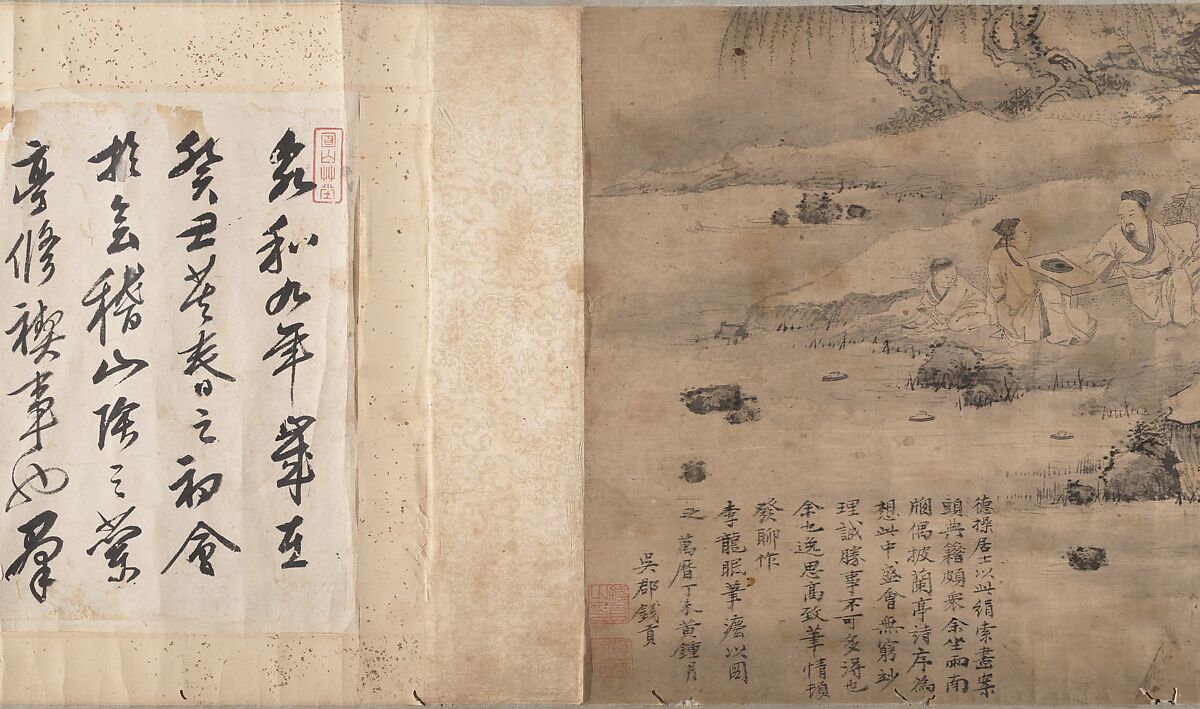 德操居士以此絹索畫案
頭典籍頗眾余坐雨南
牕偶披蘭亭詩序為
想此中盛會無窮妙
理誠勝事不可多得也
余也逸思高致筆情頓
發聊作
李龍眠筆灋以圖
之 萬曆丁未黃鍾月
吳郡錢貢
永和九年歲在
癸丑暮春之初會
於會稽山陰之蘭
亭脩禊事也羣